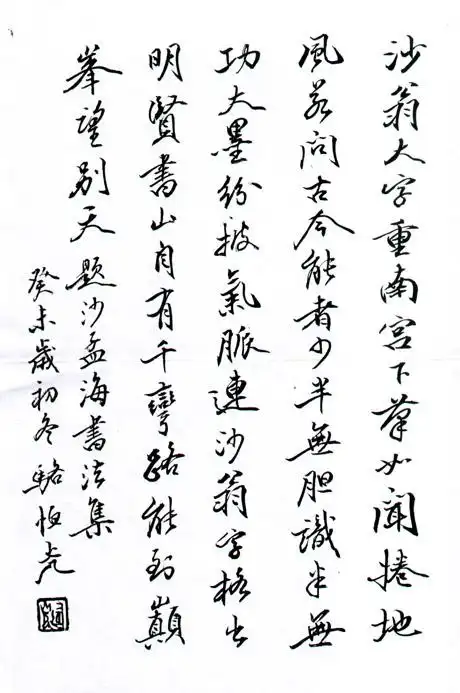 沙翁大字重南宫下筆如聞捲地
風若问古今能者少半無胆識半無
功大墨纷披氣脈連沙翁字格出
明賢書山自有千彎路能到巔
峯望别天 题沙孟海書法集
癸未歲初冬 骆恒光